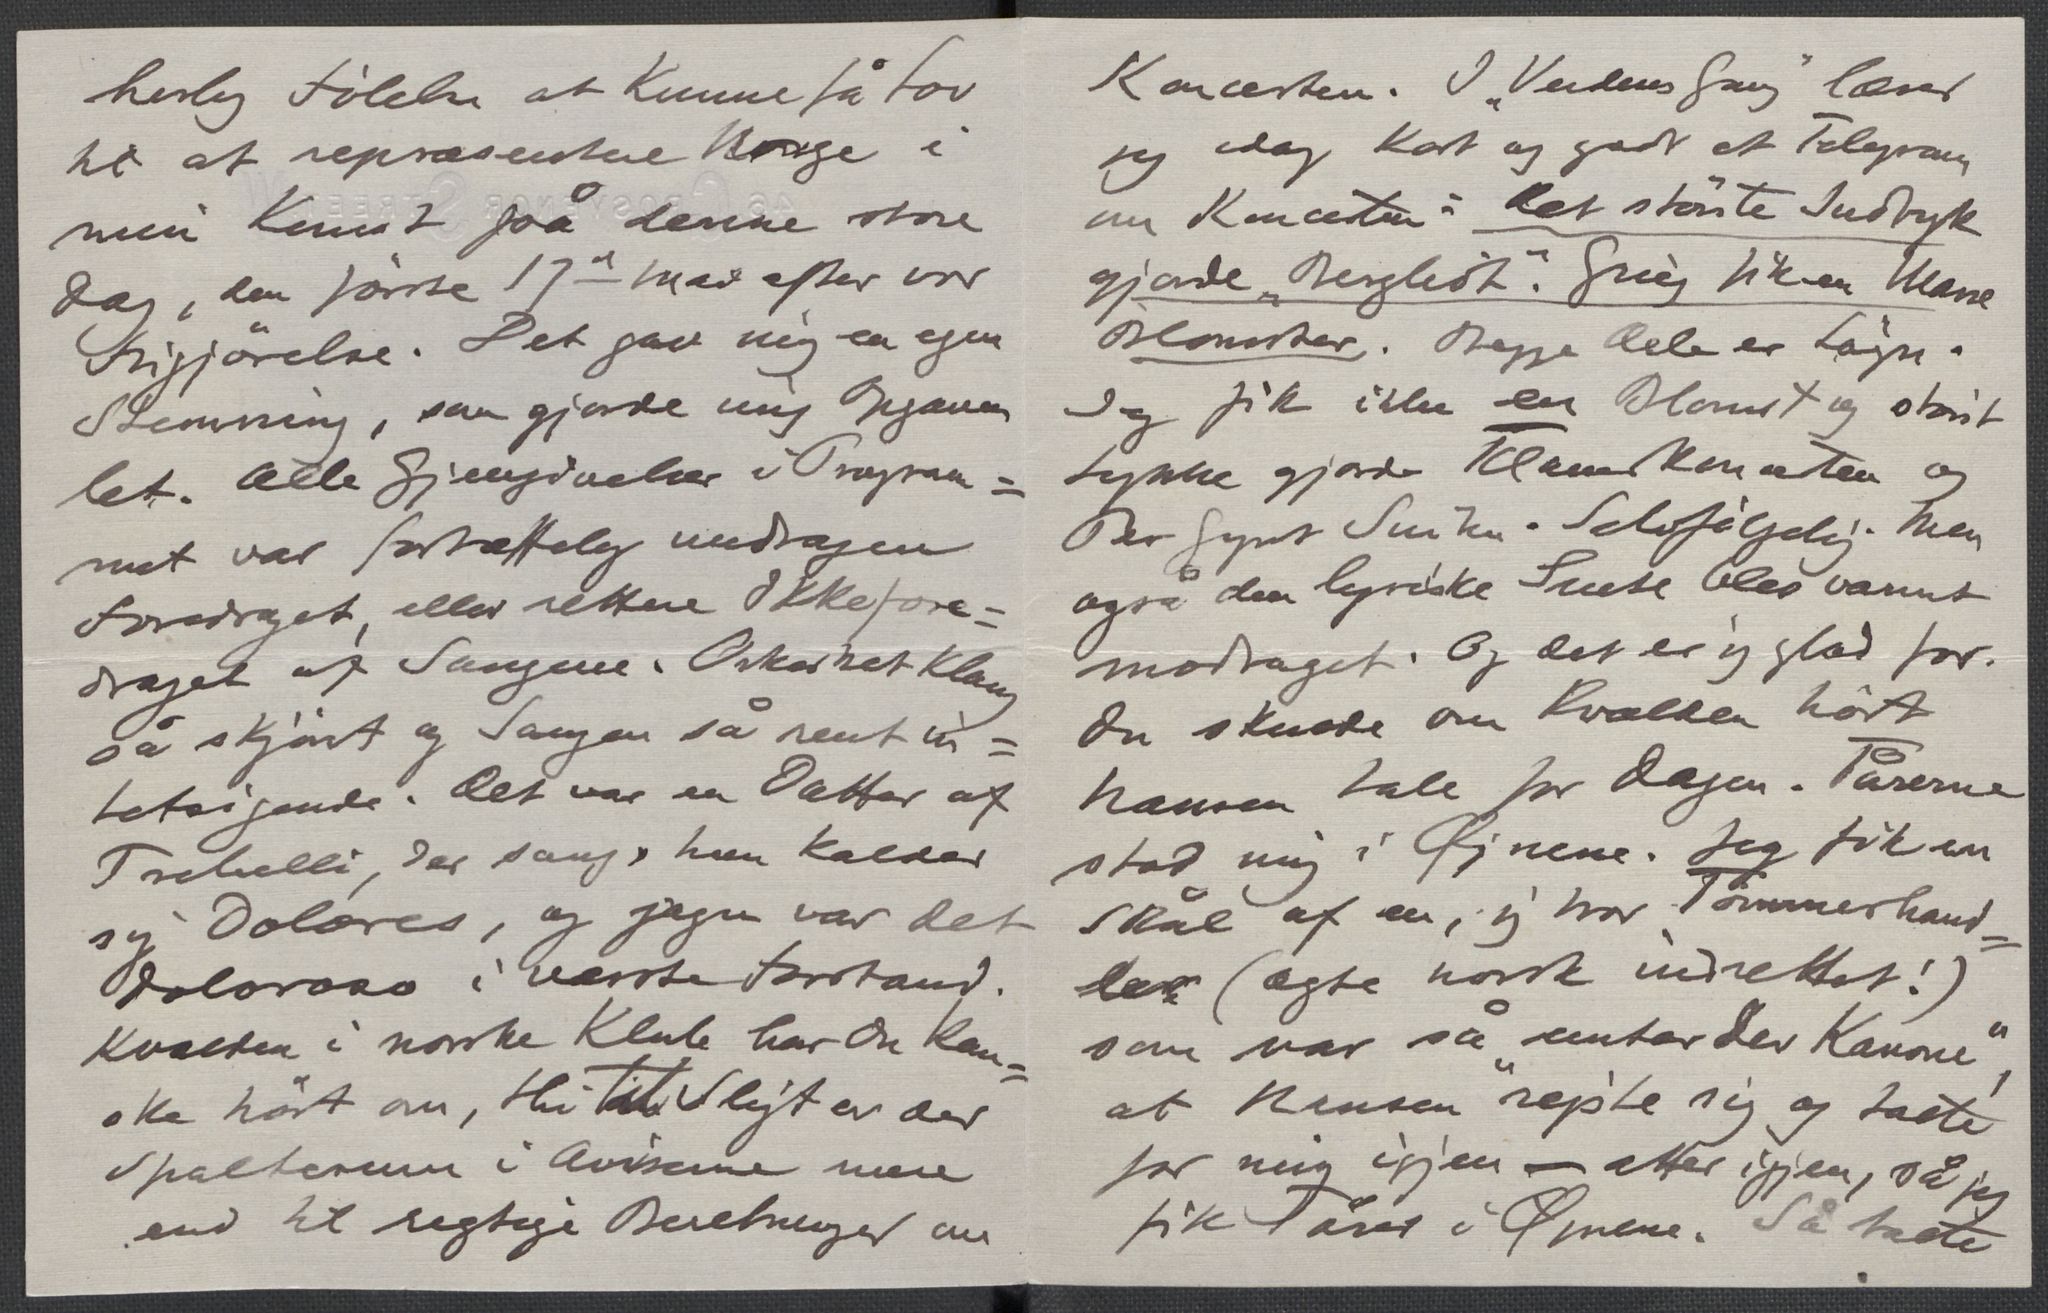 herlig Følelse at kunne få Lov
til at repræsentere Norge i
min Kunst på denne store
Dag, den første 17de Mai efter vor
Frigjørelse. Det gav mig en egen
Stemning, som gjorde mig Opgaven
let. Alle Gjengivelser i Program=
met var fortræffelig undtagen
Foredraget, eller rettere Ikkefore=
draget af Sangene. Orkestret klang
så skjønt og Sangen så rent in=
tetsigende. Det var en Datter af
Trebelli, der sang, hun kalder
sig Dolores, og jagu var det
doloroso i værste Forstand.
Kvælden i norske Klub har Du kan=
ske hørt om, thi til Sligt er der
Spalterum i Aviserne mere
end til rigtige Beretninger om
46 GROSVENOR STREET W
Koncerten. I „Verdens Gang" læser
jeg idag kort og godt et Telegram
om Koncerten: Det største Indtryk
gjorde „Bergliot". Grieg fik en Masse
Blomster. Begge Dele er Løgn.
Jeg fik ikke en Blomst og størst
Lykke gjorde Klaverkoncerten og
Peer Gynt Suiten. Selvfølgelig. Men
også den lyriske Suite blev varmt
modtaget. Og det er jeg glad for.
Du skulde om Kvælden hørt
Nansen tale for Dagen. Tårerne
stod mig i Øjnene. Jeg fik en
Skål af en, jeg tror Tømmerhand=
ler (ægte norsk indrettet!)
som var så „unter der Kanone",
at Nansen rejste sig og talte
for mig igjen – atter igjen, så jeg
fik Tårer i Øjnene. Så talte